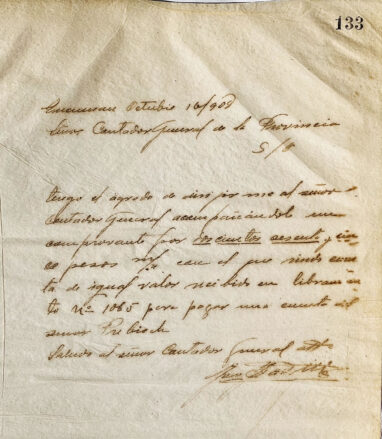 133
Octubre 10/908
Señor Contador General de la Provincia
S/D
tengo el agrado de dirijirme al señor
Contador General acompañandole un
comprovante por doscientos sesenta y cin
co pesos m/n con el que rindo cuen
ta de igual valor recibido en libramien
to Nº 1065 para pagar una cuenta al
señor
Saludo al señor Contador General atte